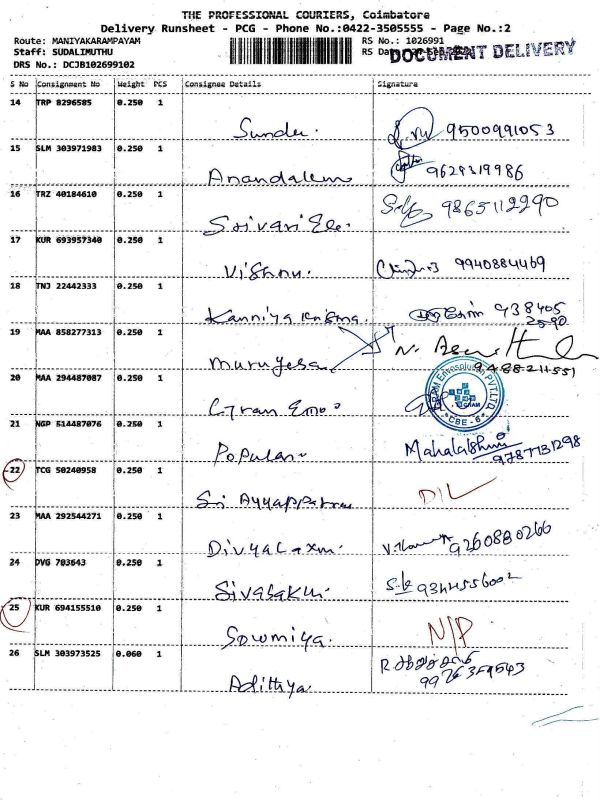 THE PROFESSIONAL COURIERS, Coimbatore
Delivery Runsheet - PCG - Phone No.:0422-3505555 - Page No.:2
Route: MANIYAKARAMPAYAM
RS No.: 1026991
Staff: SUDALIMUTHU
RS Da
DOCUMENT DELIVERY
DRS No.: DCJB102699102
S No Consignment No Weight PCS Consignee Details Signature
14 TRP 8296585 0.250 1
Sunder. 9500991053
15 SLM 303971983 0.250 1
9629319986
16 TRZ 40184610 0.250 1
Srivari Ele. 9865112290
17 KUR 693957340 0.250 1
Vishnu. 9940884469
18 TNJ 22442333 0.250 1
Kanniya 938405
2590
19 MAA 858277313 0.250 1
Murugesa N.
9488211551
20 MAA 294487087 0.250 1
Gram Envo
GRAM Envospiution PVT.LTD.
GRAM
CBE - 6
21 NGP 514487076 0.250 1
Popular Mahalakshmi
9787131298
22 TCG 50240958 0.250 1
Sri Ayyappa DIL
23 MAA 292544271 0.250 1
DivyaLaxmi. 9260880266
24 DVG 703643 0.250 1
Sivasaku. 9344556002
25 KUR 694155510 0.250 1
Sowmiya. N/P
26 SLM 303973525 0.060 1
Adithya.